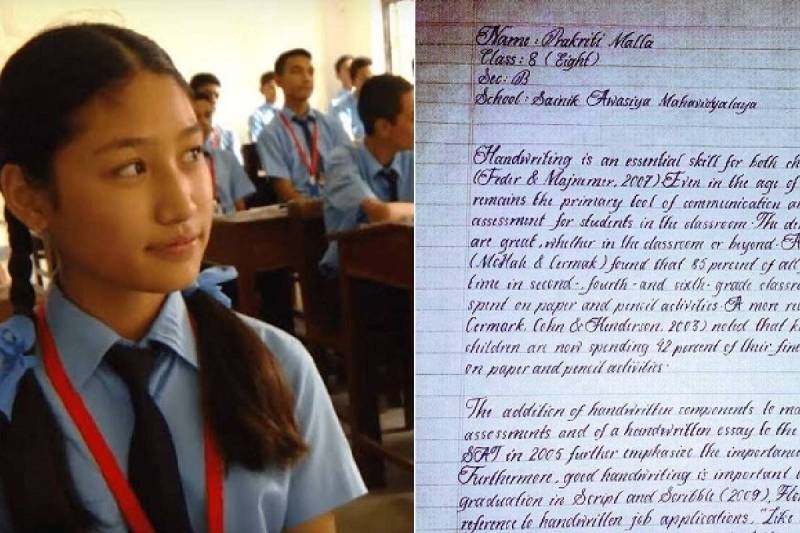 Name : Prakriti Malla
Class : 8 ( Eight )
Sec : B
School : Sainik Awasiya Mahavidyalaya
Handwriting is an essential skill for both ch
(Feder & Majnemer, 2007) Even in the age of
remains the primary tool of communication an
assessment for students in the classroom. The de
are great, whether in the classroom or beyond. A
(McHale & Cermak) found that 85 percent of all
time in second-, fourth- and sixth- grade classro
spent on paper and pencil activities. A more re
Cermark, Cohn & Henderson, 2003) noted that k
children are now spending 42 percent of their fine
on paper and pencil activities.
The addition of handwritten components to ma
assessments and of a handwritten essay to the
SAT in 2005 further emphasize the importance
Furthermore, good handwriting is important
graduation in Script and Scribble (2009), Flo
reference to handwritten job applications, "Like